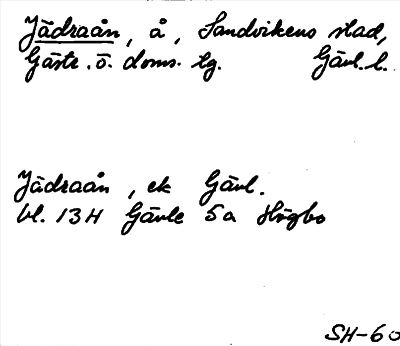 Jädraån, å, Sandvikens stad,
Gästr. ö. doms. lg. Gävl. l.
Jädraån, ek Gävl.
bl. 13H Gävle 5a Högbo
SH-60